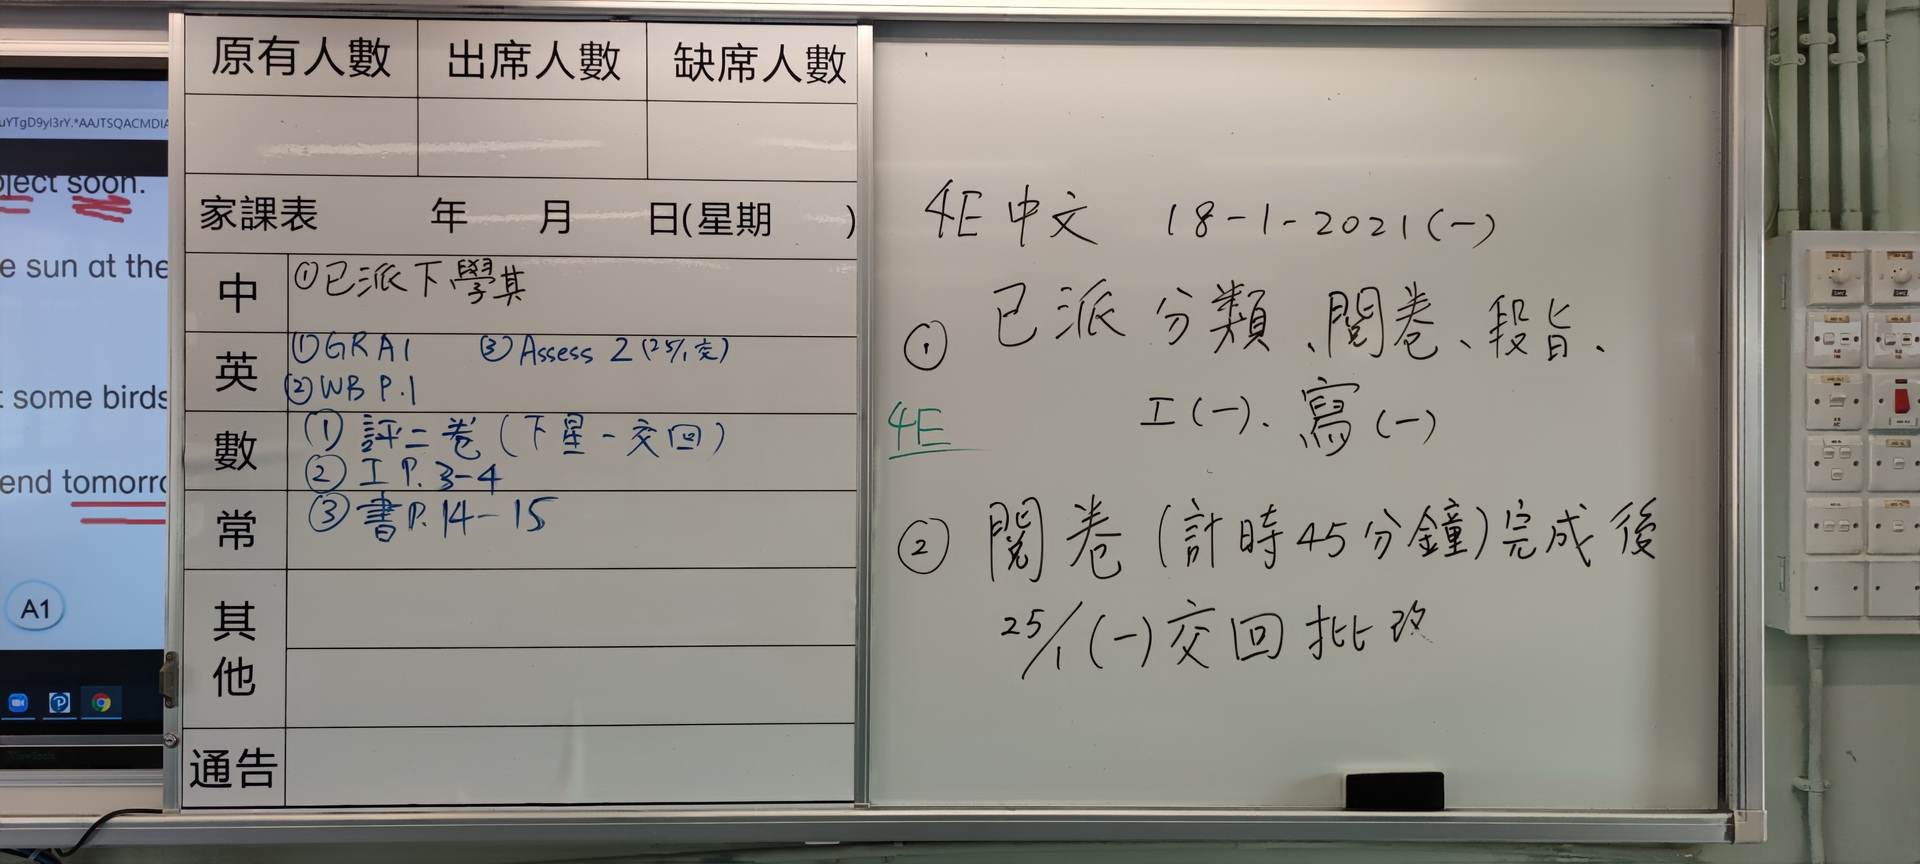 uYTgD9yI3rY.*AAJTSQACMDIA
ject soon.
e sun at the
t some birds
end tomorro
A1
ViewSonic
原有人數 出席人數 缺席人數
家課表 年 月 日(星期 )
中 ①已派下學其
英 ①GRA1 ③Assess 2 (25/1交)
②WB P.1
數 ①評二卷(下星一交回)
②工P.3-4
常 ③書P.14-15
其他
通告
4E中文 18-1-2021(一)
① 已派分類、閱卷、段旨、
工(一)、寫(一)
4E
② 閱卷(計時45分鐘)完成後
25/1(一)交回批改